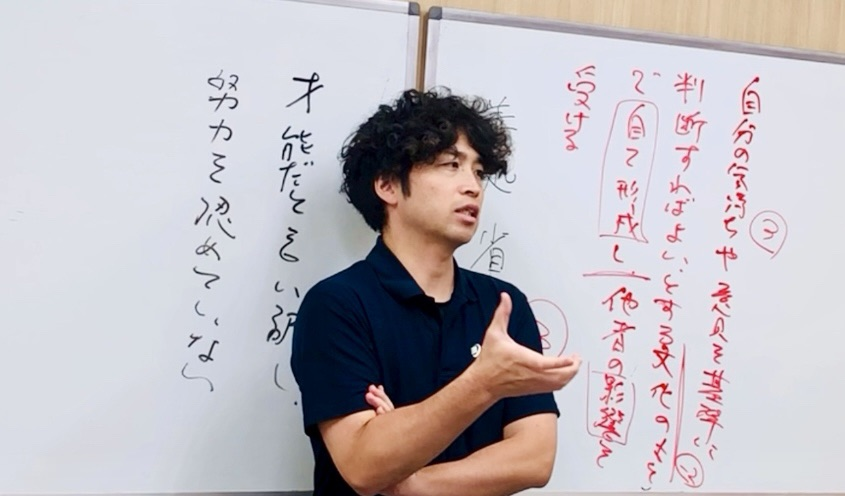 自分の気持ちや意見を基準に
判断すればよい、とする文化のもと
で自て形成し、他者の影響を
受ける
③
②
省
才能だともい訳し、
努力を認めていない